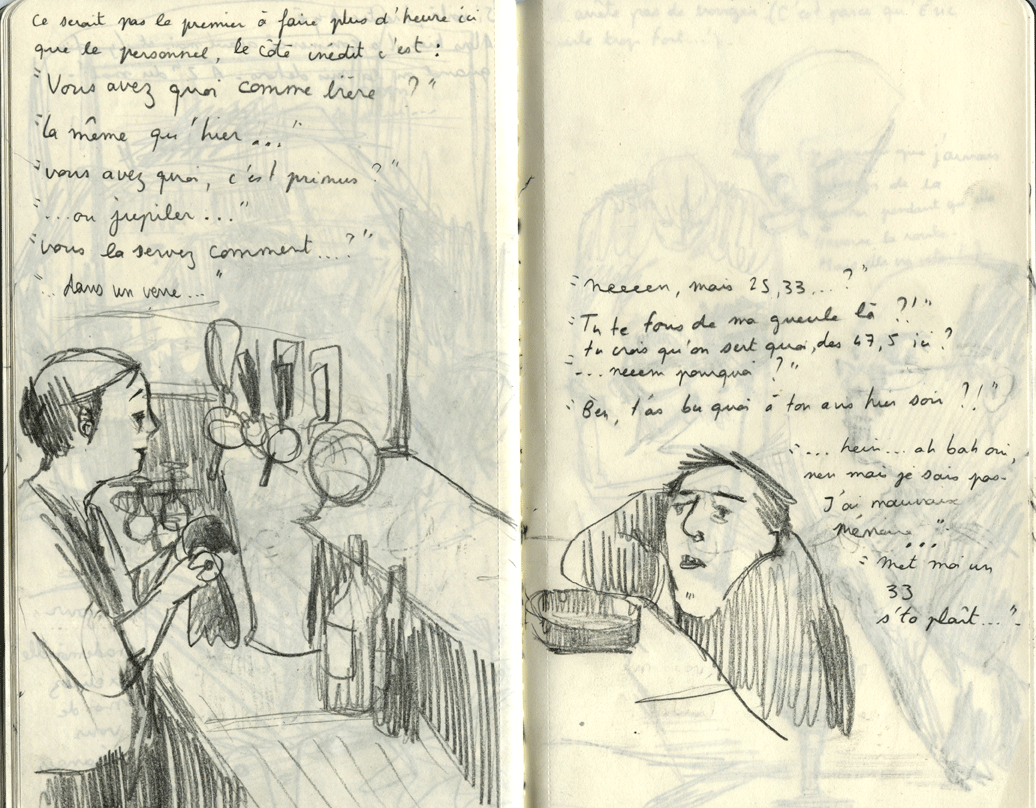 Ce serait pas le premier à faire plus d'heure ici
que le personnel, le côté inédit c'est :
"Vous avez quoi comme bière ?"
"la même qu'hier..."
"vous avez quoi, c'est primus ?"
"...ou jupiler..."
"vous la servez comment...?"
"...dans un verre..."
"neeeen, mais 25, 33...?"
"Tu te fous de ma gueule là ?!"
tu crois qu'on sert quoi, des 47,5 ici ?
"... neeem pourquoi ?"
"Ben, t'as bu quoi à ton avis hier soir ?!"
"... hein... ah bah oui,
nen mai je sais pas.
J'ai mauvaise
...
"met moi un
33
s'to plaît..."